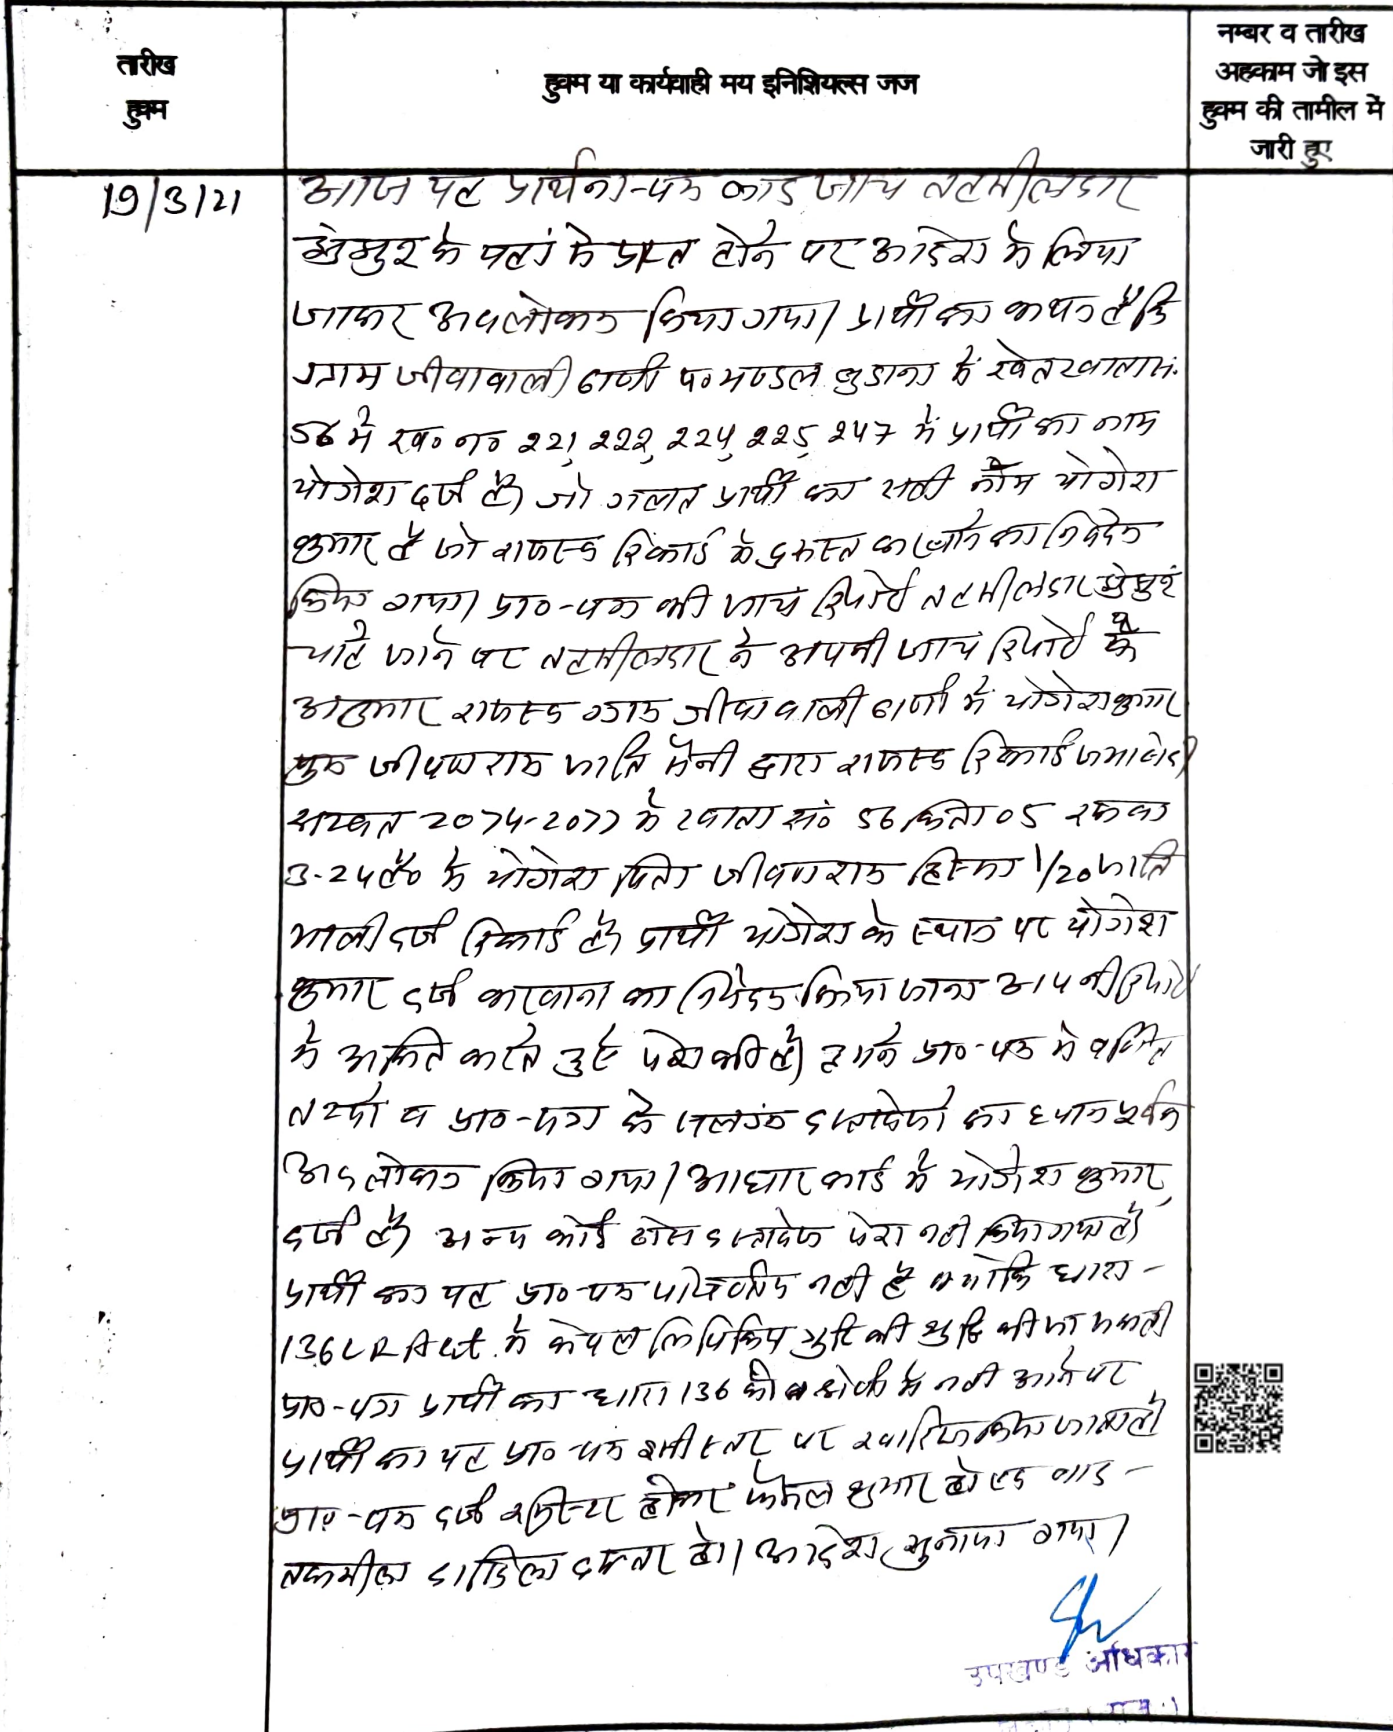 तारीख
हुक्म
हुक्म या कार्यवाही मय इनिशियल्स जज
नम्बर व तारीख
अहकाम जो इस
हुक्म की तामील में
जारी हुए
19/3/21
आज यह प्रार्थना-पत्र बाद जांच तहसीलदार
के यहां से प्राप्त होने पर आदेश में लिया
जाकर अवलोकन किया गया। प्रार्थी का कथन है कि
ग्राम जीवावाली ढाणी प० मण्डल बुडाना के खेत खाता सं.
56 में ख० न० 221, 222, 224, 225, 247 में प्रार्थी का नाम
योगेश दर्ज है। जो गलत प्रार्थी का सही नाम योगेश
कुमार है जो राजस्व रिकार्ड में दुरुस्त करवाने का निवेदन
किया गया। प्रा०-पत्र की जांच रिपोर्ट तहसीलदार
चाहे जाने पर तहसीलदार ने अपनी जांच रिपोर्ट के
अनुसार राजस्व ग्राम जीवावाली ढाणी में योगेश कुमार
पुत्र जीवणराम जाति सैनी द्वारा राजस्व रिकार्ड जमाबंदी
सम्वत 2074-2077 के खाता सं० 56 किता 05 रकबा
3-24 है० में योगेश पिता जीवणराम हिस्सा 1/20 जाति
माली दर्ज रिकार्ड है। प्रार्थी योगेश के स्थान पर योगेश
कुमार दर्ज करवाना का निवेदन किया जाना अपनी रिपोर्ट
में अंकित करते हुऐ पेश की है। हमने प्रा०-पत्र में वर्णित
तथ्यों व प्रा०-पत्र के संलग्न दस्तावेजों का ध्यान पूर्वक
अवलोकन किया गया। आधार कार्ड में योगेश कुमार
दर्ज है। अन्य कोई ठोस दस्तावेज पेश नही किया गया है।
प्रार्थी का यह प्रा०-पत्र नही है क्योंकि धारा-
136 LR Act. में केवल लिपिकिय त्रुटि की शुद्धि की जा सकती
प्रा०-पत्र प्रार्थी का धारा 136 की श्रेणी में नही आने पर
प्रार्थी का यह प्रा०-पत्र इसी स्तर पर खारिज किया जाता है।
प्रा०-पत्र दर्ज रजिस्टर होकर फैसल शुमार हो एवं बाद-
तकमील दाखिल दफ्तर हो। आदेश सुनाया गया।
उपखण्ड अधिकारी